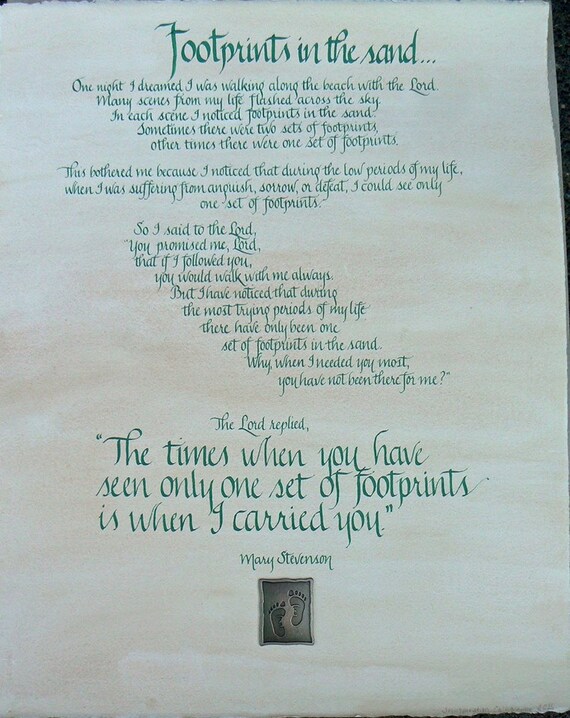 Footprints in the sand...
One night I dreamed I was walking along the beach with the Lord.
Many scenes from my life flashed across the sky.
In each scene I noticed footprints in the sand.
Sometimes there were two sets of footprints,
other times there were one set of footprints.
This bothered me because I noticed that during the low periods of my life,
when I was suffering from anguish, sorrow, or defeat, I could see only
one set of footprints.
So I said to the Lord,
"You promised me, Lord,
that if I followed you,
you would walk with me always.
But I have noticed that during
the most trying periods of my life
there have only been one
set of footprints in the sand.
Why, when I needed you most,
you have not been there for me?"
The Lord replied,
"The times when you have
seen only one set of footprints
is when I carried you"
Mary Stevenson